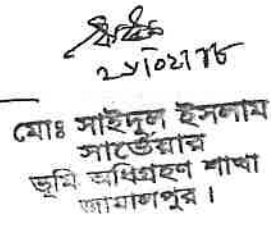 মোঃ সাইদুল ইসলাম
সার্ভেয়ার
ভূমি অধিগ্রহণ শাখা
জামালপুর।